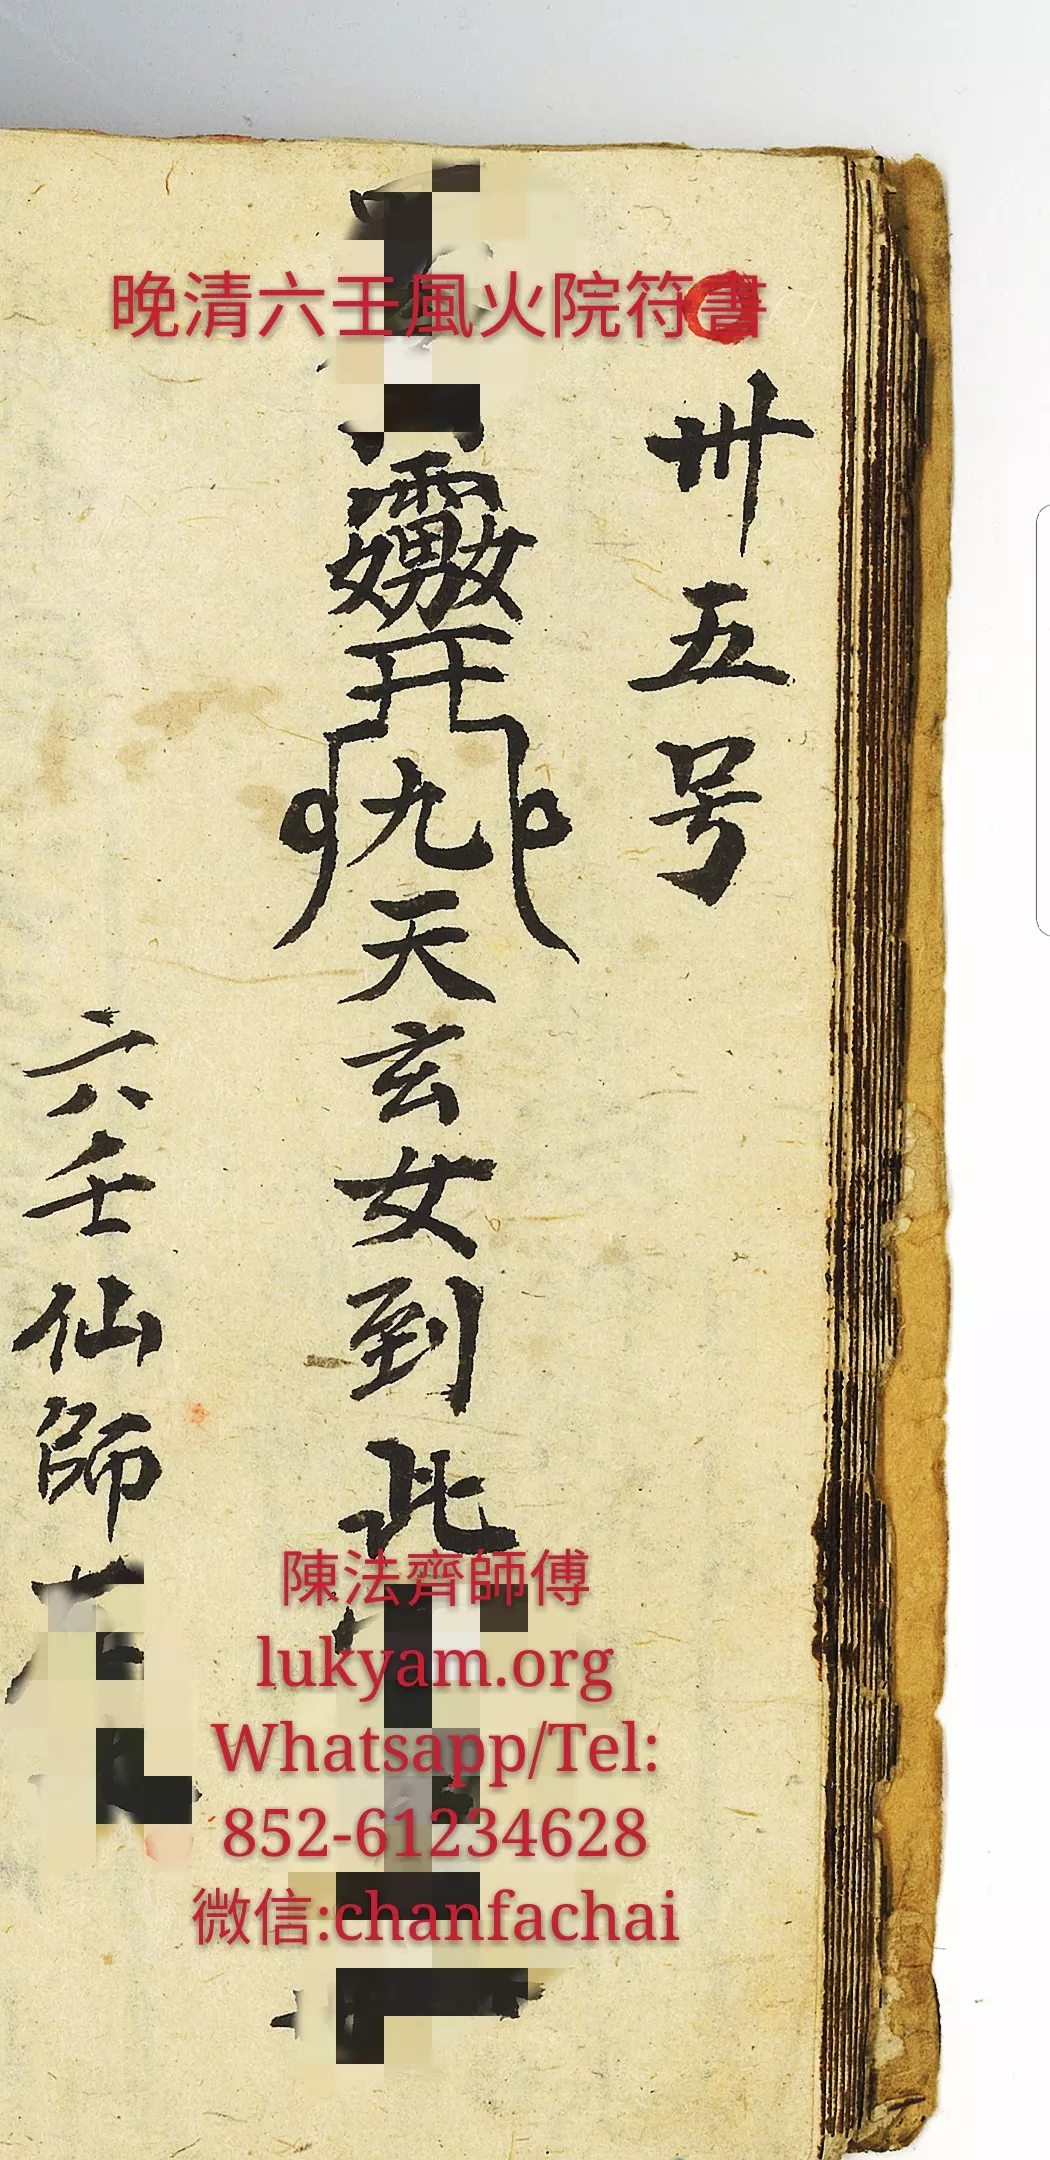 晚清六壬風火院符書
卅五号
九天玄女到此
六壬仙師
陳法齊師傅
lukyam.org
Whatsapp/Tel:
852-61234628
微信:chanfachai